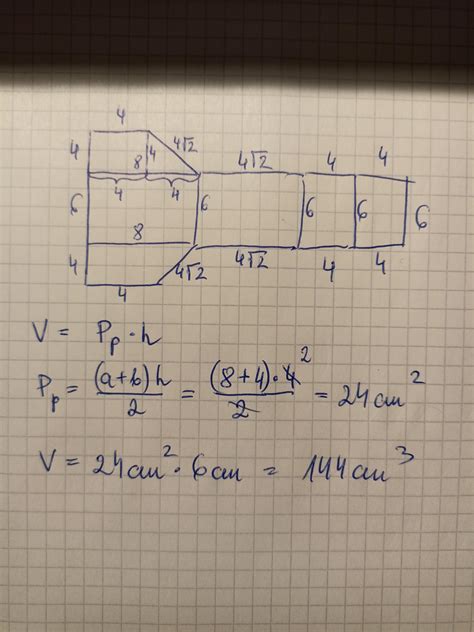 4
4 8 4 4√2 4√2 4 4
4 4
6 6 6 6 6
8
4 4√2 4√2 4 4
4
V = Pp · h
Pp = (a+b)h / 2 = (8+4)·4 2 / 2 = 24 cm²
V = 24 cm² · 6 cm = 144 cm³